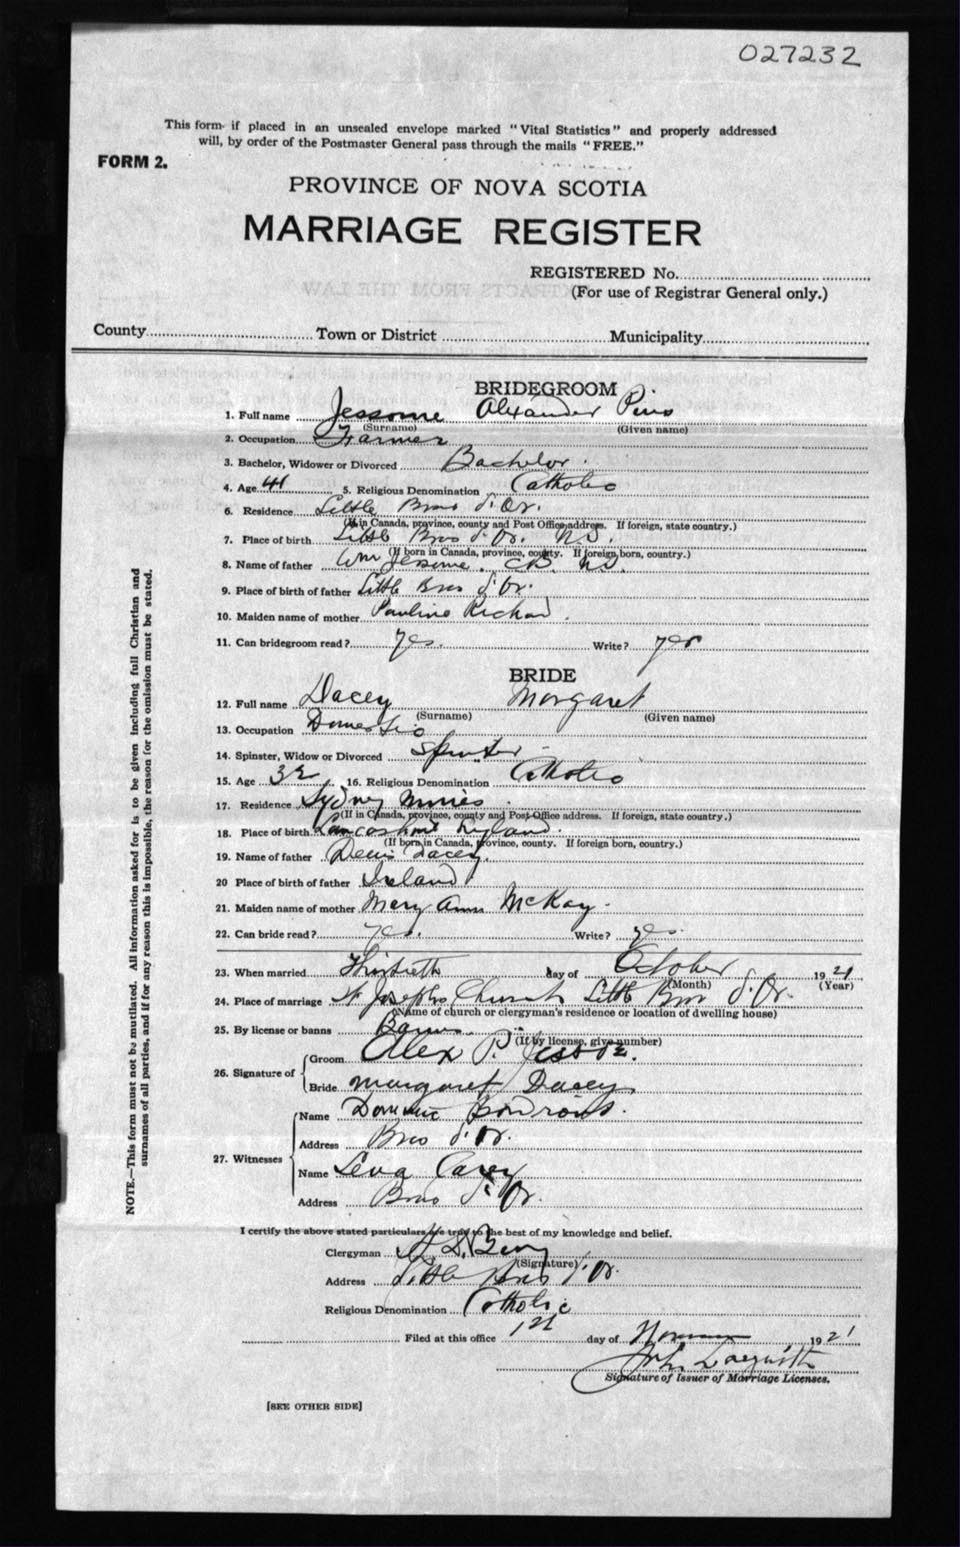 027232
This form if placed in an unsealed envelope marked "Vital Statistics" and properly addressed
will, by order of the Postmaster General pass through the mails "FREE."
FORM 2.
PROVINCE OF NOVA SCOTIA
MARRIAGE REGISTER
REGISTERED No.
(For use of Registrar General only.)
County Town or District Municipality
BRIDEGROOM
1. Full name Jessome Alexander Pius
(Surname) (Given name)
2. Occupation Farmer
3. Bachelor, Widower or Divorced Bachelor
4. Age 41 5. Religious Denomination Catholic
6. Residence Little Bras d'Or.
(If in Canada, province, county and Post Office address. If foreign, state country.)
7. Place of birth Little Bras d'Or. N.S.
(If born in Canada, province, county. If foreign born, country.)
8. Name of father Wm Jessome. C.B. N.S.
9. Place of birth of father Little Bras d'Or.
10. Maiden name of mother Pauline Richard
11. Can bridegroom read? yes. Write? yes
BRIDE
12. Full name Dacey Margaret
(Surname) (Given name)
13. Occupation Domestic
14. Spinster, Widow or Divorced Spinster
15. Age 32 16. Religious Denomination Catholic
17. Residence Sydney Mines
(If in Canada, province, county and Post Office address. If foreign, state country.)
18. Place of birth Lancashire
(If born in Canada, province, county. If foreign born, country.)
19. Name of father Denis Dacey.
20 Place of birth of father Ireland
21. Maiden name of mother Mary Ann McKay.
22. Can bride read? yes. Write? yes.
23. When married Thirtieth day of October 1921
(Month) (Year)
24. Place of marriage St Joseph's Church Little Bras d'Or.
(Name of church or clergyman's residence or location of dwelling house)
25. By license or banns Banns
(If by license, give number)
26. Signature of
Groom Alex P.
Bride Margaret Dacey
27. Witnesses
Name
Address Bras d'Or.
Name Carey
Address Bras d'Or.
I certify the above stated particulars are true to the best of my knowledge and belief.
Clergyman
(Signature)
Address Little Bras d'Or.
Religious Denomination Catholic
Filed at this office 1st day of 1921
Signature of Issuer of Marriage Licenses.
[SEE OTHER SIDE]
NOTE.—This form must not be mutilated. All information asked for is to be given including full Christian and
surnames of all parties, and if for any reason this is impossible, the reason for the omission must be stated.